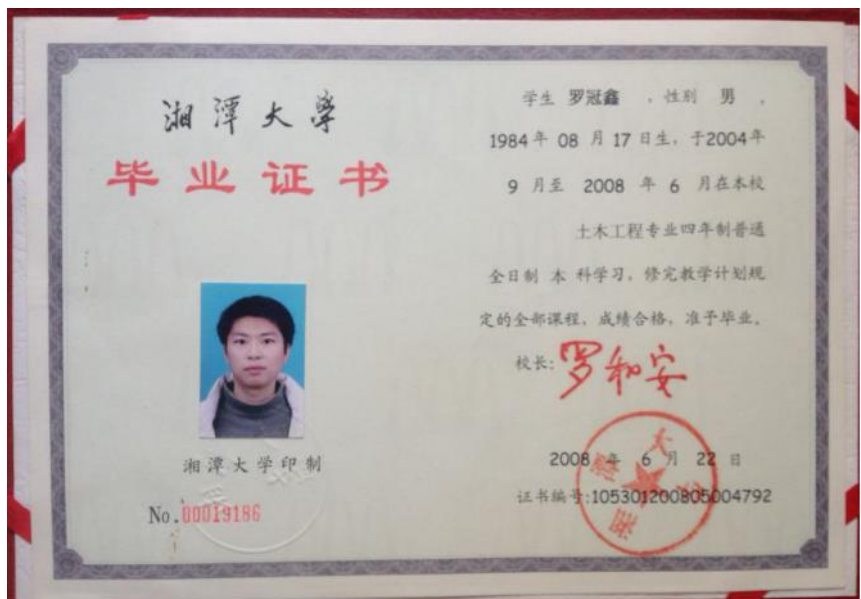 湘潭大學
毕业证书
湘潭大学印制
No.00019186
学生 罗冠鑫 ，性别 男 ，
1984年 08 月 17 日生，于2004年
9 月至 2008 年 6 月在本校
土木工程专业四年制普通
全日制 本 科学习，修完教学计划规
定的全部课程，成绩合格，准予毕业。
校长:罗和安
2008 年 6 月 22 日
证书编号:105301200805004792